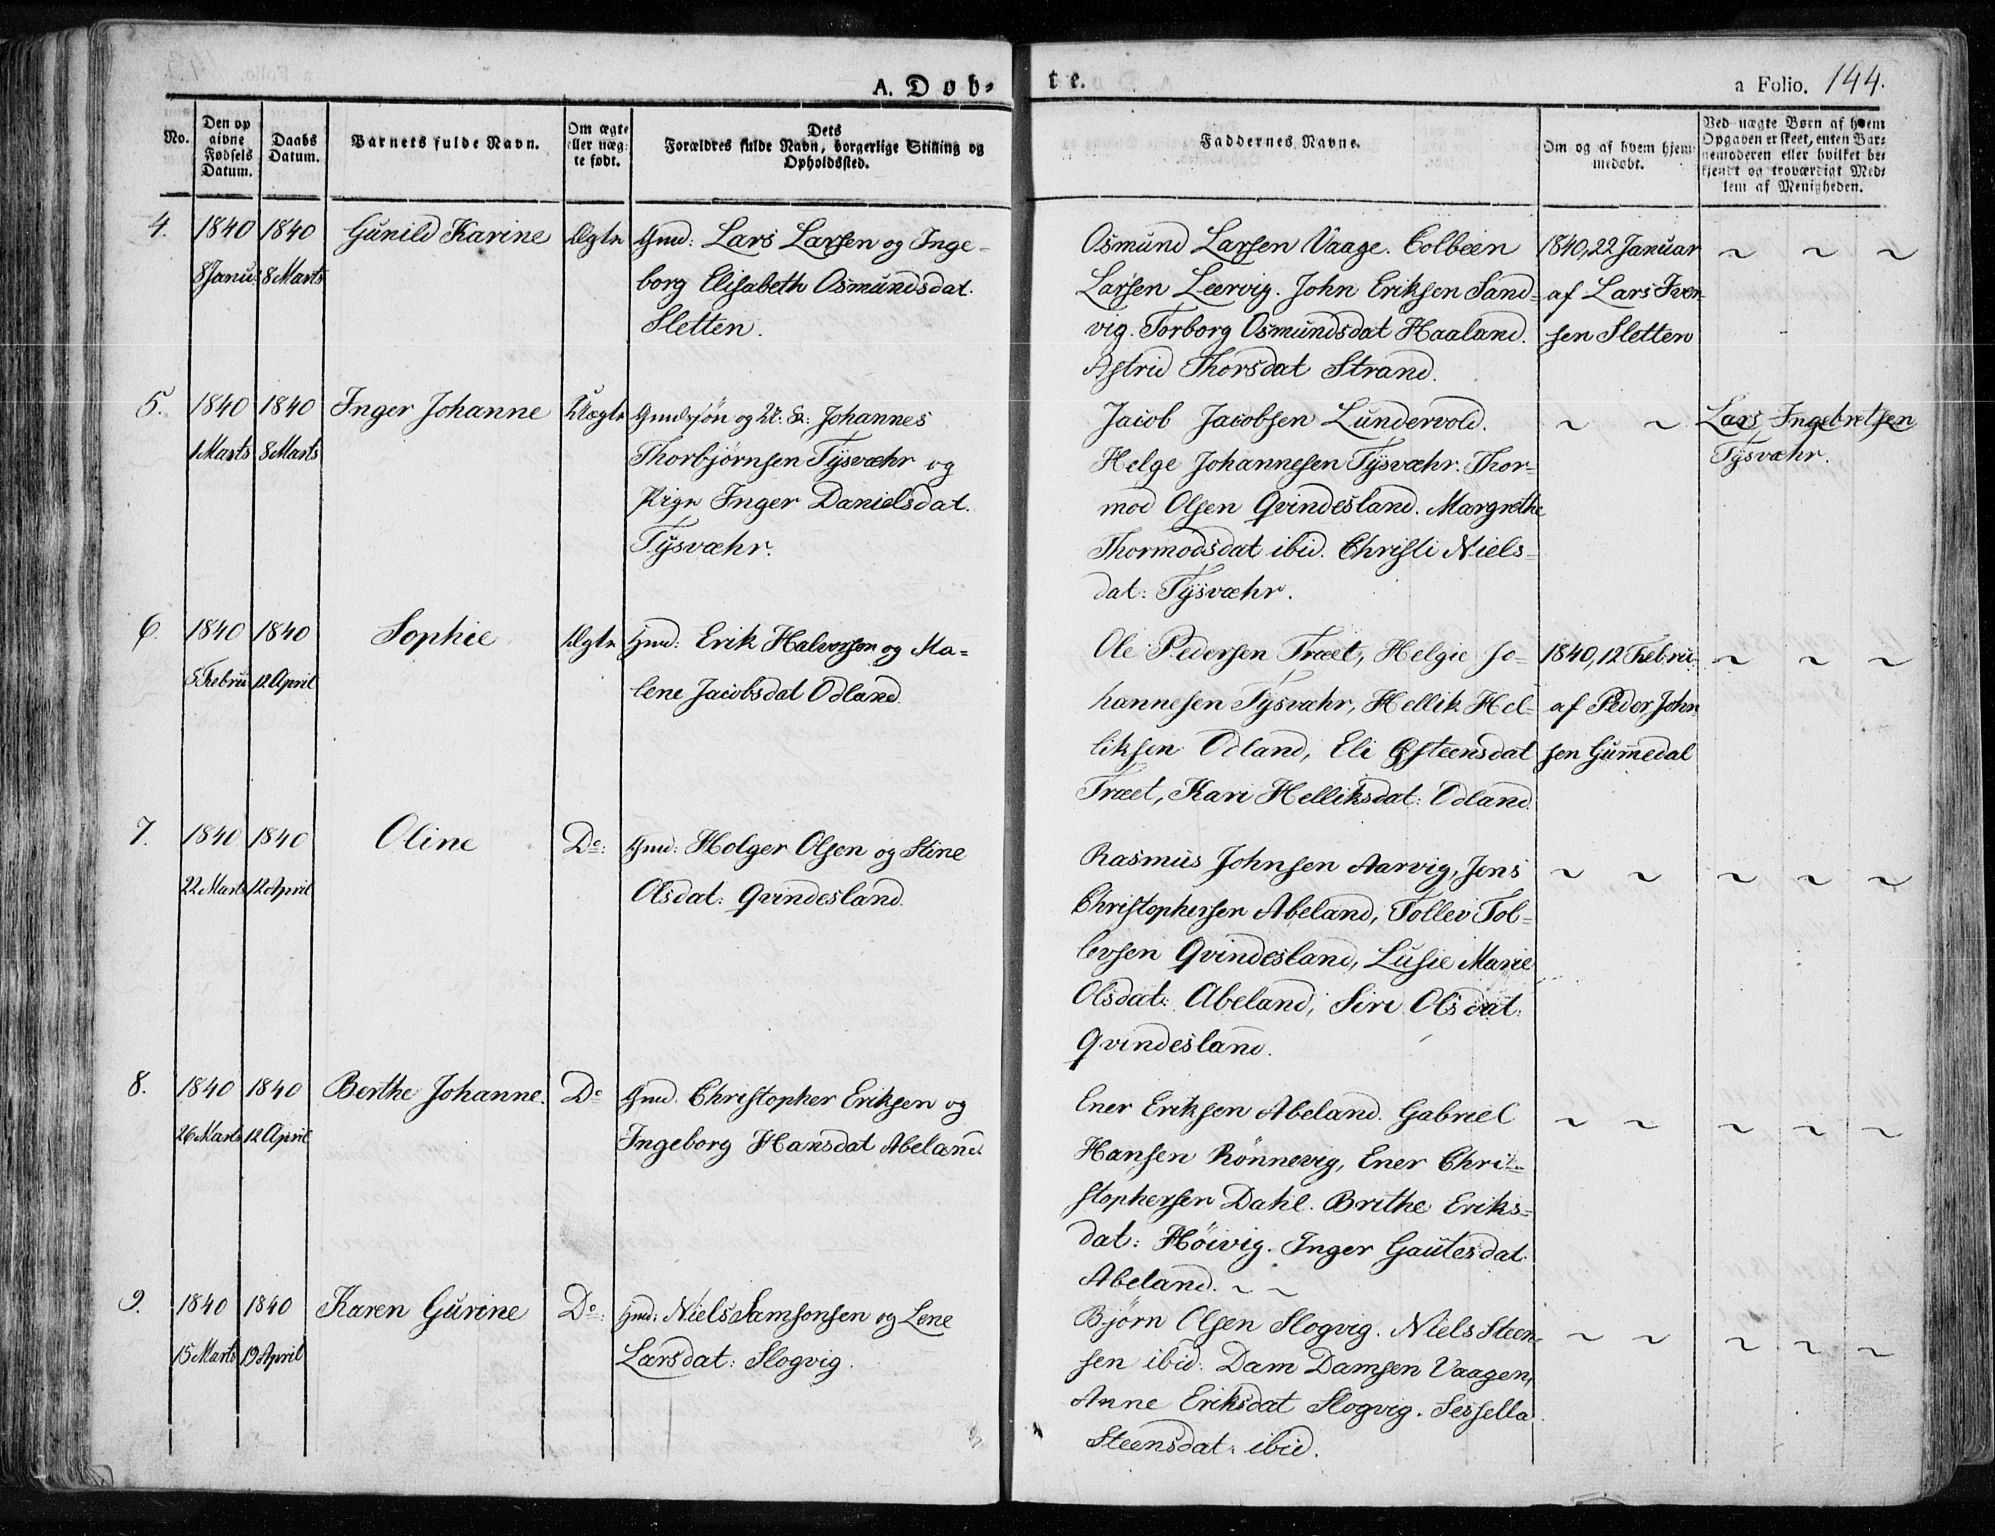 A. Døb-
te.
a Folio. 144.
No.
Den op
givne
Fødsels
Datum.
Daabs
Datum.
Barnets fulde Navn.
Om ægte
eller næg-
te født.
Dets
Forældres fulde Navn, borgerlige Stilling og
Opholdssted.
Faddernes Navne.
Om og af hvem hjem-
medøbt.
Ved uægte Børn af hvem
Opgaven er skeet, enten Bar-
nemoderen eller hvilket be-
kjendt og troværdigt Med-
lem af Menigheden.
4.
1840
8 Janu:
1840
8 Marts
Gunild Karine
Ægte
Gmd: Lars Larsen og Inge-
borg Elisabeth Osmundsdat.
Sletten.
Osmund Larsen Vaage. Colbeen
Larsen Leervig. John Eriksen Sand-
vig. Torborg Osmundsdat Haaland.
Astrid Thorsdat Strand.
1840, 22 Januar
af Lars Iver-
sen Sletten
~ ~ ~
5.
1840
1 Marts
1840
8 Marts
Inger Johanne
Uægte
Gmdssøn og U. K: Johannes
Thorbjørnsen Tysvæhr og
Pige Inger Danielsdat.
Tysvæhr.
Jacob Jacobsen Lundervold.
Helge Johannesen Tysvæhr. Thor-
mod Olsen Qvindesland. Margrethe
Thormodsdat ibid. Christi Niels-
dat: Tysvæhr.
~ ~
Lars Ingebretsen
Tysvæhr.
6.
1840
5 Febru
1840
12 April
Sophie
Ægte
Gmd: Erik Halvorsen og Ma-
lene Jacobsdat Odland
Ole Pedersen Træet, Helgie Jo-
hannesen Tysvæhr, Hellik Hel-
liksen Odland, Eli Østeensdat
Træet, Kari Helliksdat: Odland.
1840, 12 Febru
af Peder John
sen Gum̅edal
~ ~ ~
7.
1840
22 Marts
1840
12 April
Oline
Do:
Gmd: Holger Olsen og Stine
Olsdat: Qvindesland.
Rasmus Johnsen Aarvig, Jens
Christophersen Abeland, Tollev Tol-
levsen Qvindesland, Lusie Marie
Olsdat: Abeland, Siri Olsdat:
Qvindesland.
~ ~
~ ~ ~
8.
1840
26 Marts
1840
12 April
Berthe Johanne.
Do
Gmd. Christopher Eriksen og
Ingeborg Hansdat Abeland.
Ener Eriksen Abeland. Gabriel
Hansen Rönnevig, Ener Chri-
stophersen Dahl. Brithe Eriks-
dat: Höivig. Inger Gautesdat:
Abeland. ~ ~
~ ~
~ ~ ~
9.
1840
15 Marts
1840
19 April
Karen Gurine
Do:
Gmd: Niels Samsonsen og Lene
Larsdat: Slogvig.
Bjørn Olsen Slogvig. Niels Steen-
sen ibid. Dam Damsen Vaagen,
Anne Eriksdat Slogvig. Sessella
Steensdat: ibid.
~ ~
~ ~ ~